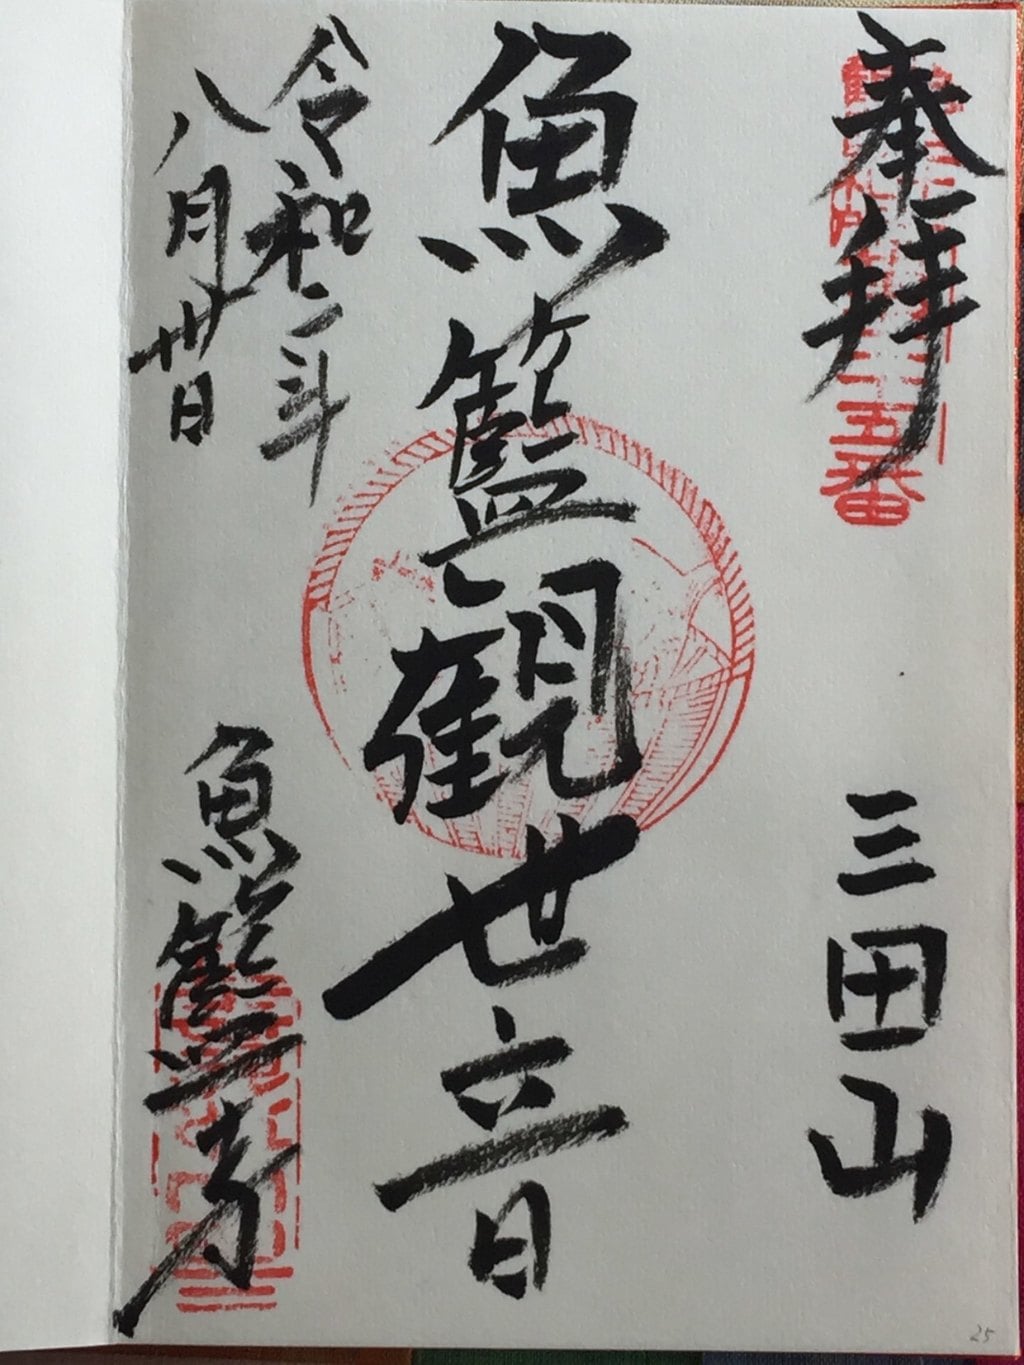 奉拝
五番
三田山
魚籃観世音
令和二年
八月卅日
魚籃寺
25